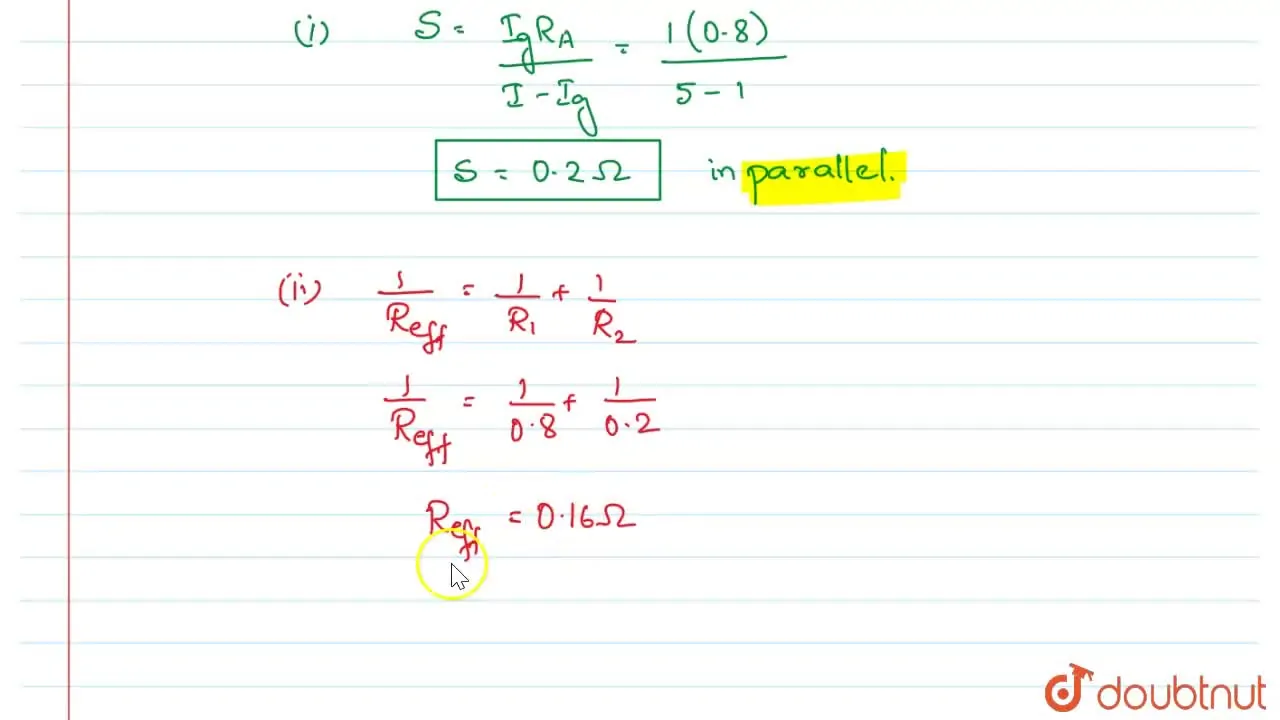 (i) S = IgRA / I - Ig = 1(0.8) / 5 - 1
S = 0.2Ω in parallel.
(ii) 1/Reff = 1/R1 + 1/R2
1/Reff = 1/0.8 + 1/0.2
Reff = 0.16Ω
doubtnut